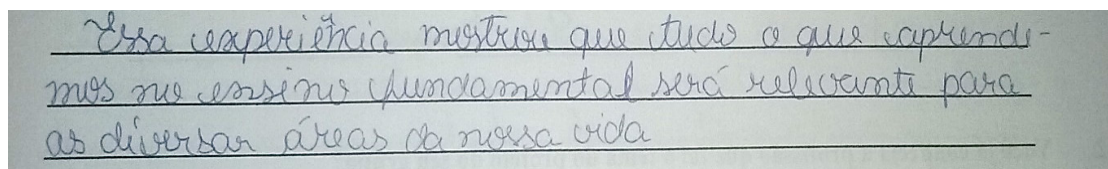 Essa experiência mostrou que tudo o que aprendi-
mos no ensino fundamental será relevante para
as diversas áreas da nossa vida